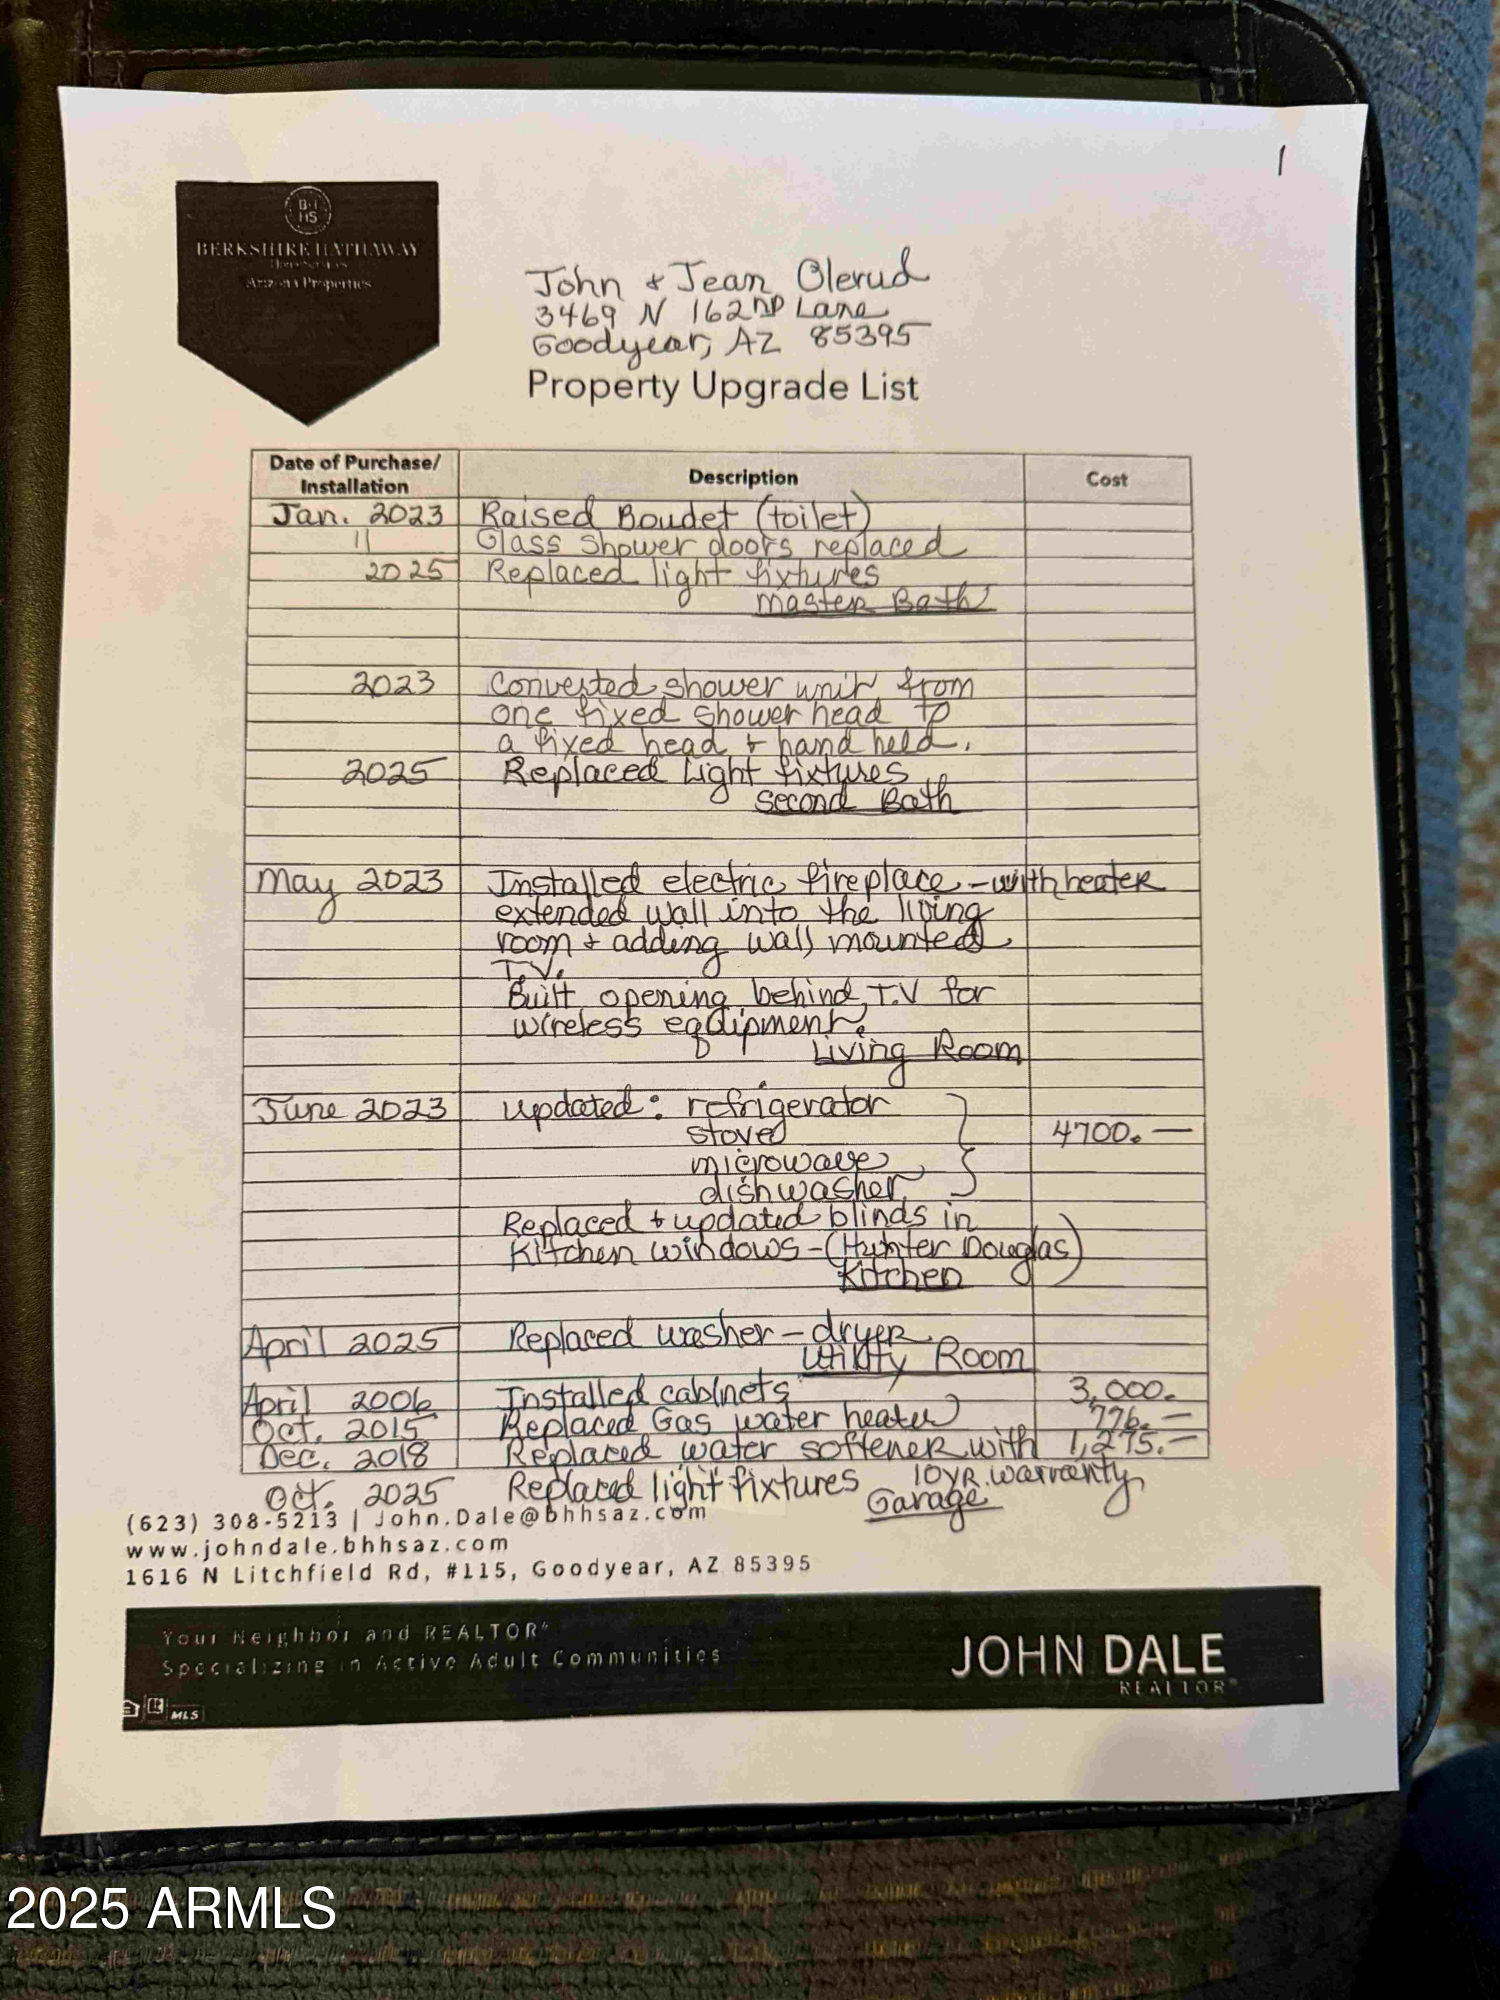 1
BHHS
BERKSHIRE HATHAWAY
HomeServices
Arizona Properties
John & Jean Olerud
3469 N 162ND Lane
Goodyear, AZ 85395
Property Upgrade List
Date of Purchase/ Installation Description Cost
Jan. 2023 Raised Boudet (toilet)
11 Glass shower doors replaced
2025 Replaced light fixtures
Master Bath
2023 Converted shower unit from
one fixed shower head to
a fixed head & hand held.
2025 Replaced Light fixtures
Second Bath
May 2023 Installed electric fireplace - with heater
extended wall into the living
room & adding wall mounted
T.V.
Built opening behind T.V for
wireless equipment.
Living Room
June 2023 updated: refrigerator
stove 4700.—
microwave
dishwasher
Replaced & updated blinds in
Kitchen windows - (Hunter Douglas)
Kitchen
April 2025 Replaced washer - dryer
Utility Room
April 2006 Installed cabinets 3,000.
Oct. 2015 Replaced Gas water heater 776.—
Dec. 2018 Replaced water softener with 1,275.—
10 YR. warranty
Oct. 2025 Replaced light fixtures
Garage
(623) 308-5213 | John.Dale@bhhsaz.com
www.johndale.bhhsaz.com
1616 N Litchfield Rd, #115, Goodyear, AZ 85395
Your Neighbor and REALTOR®
Specializing in Active Adult Communities
JOHN DALE
REALTOR®
MLS
2025 ARMLS